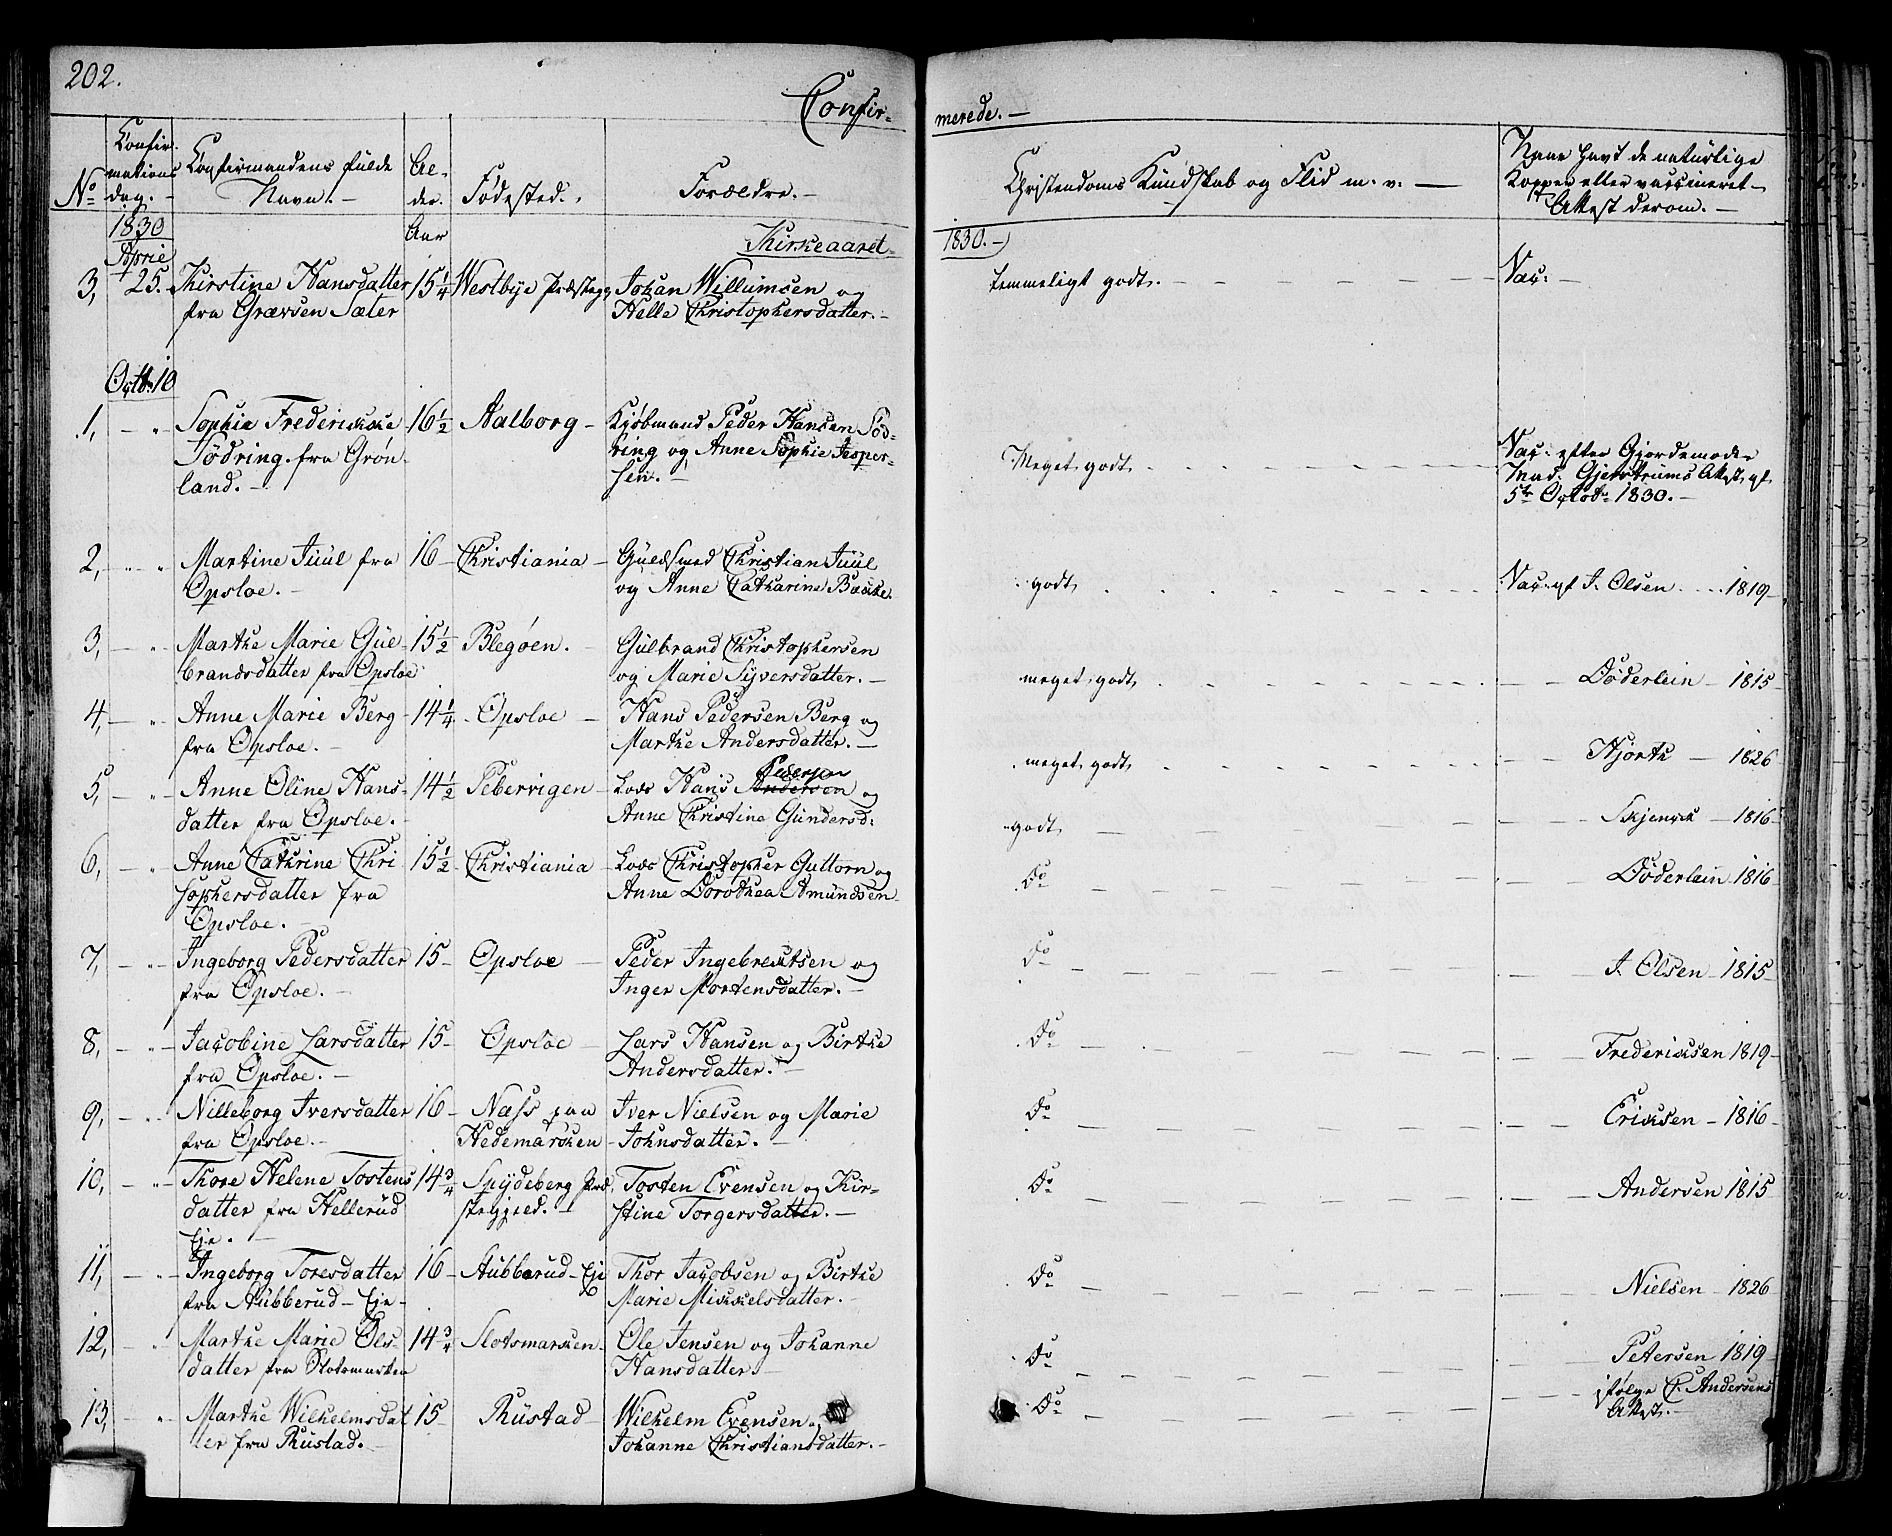 202.
Confir-
merede. -
No
Confir-
mations
dag. -
Confirmandens fulde
Navn. -
Al-
der.
Aar
Fødested. -
Forældre. -
Christendoms Kundskab og Flid m. v. -
Naar havt de naturlige
Kopper eller vaccineret -
Attest derom. -
1830
Kirkeaaret
1830. -
April
3, 25. Kirstine Hansdatter 15 1/4 Westbye Præsteg. Johan Willumsen og temmeligt godt. - Vac: -
fra Grævsen Sæter Helle Christophersdatter. -
Octb. 10
1, - " Sophie Frederikke 16 1/2 Aalborg - Kjøbmand Peder Hansen Sød-
Södring fra Grøn- ring og Anne Sophie Jesper- Meget godt Vac: efter Gjordemoder
land. - sen. - Mad: Gjerstrums Attest af
5te Octobr 1830. -
2, - " Martine Juul fra 16 - Christiania - Guldsmed Christian Juul
Opsloe. - og Anne Catharine Backe. godt Vac: af J. Olsen 1819 -
3, - " Marthe Marie Gul- 15 1/2 Blegøen. - Gulbrand Christophersen
brandsdatter fra Opsloe og Marie Syversdatter. - meget godt - - Döderlein - 1815 -
4, - " Anne Marie Berg 14 1/4 - Opsloe - Hans Pedersen Berg og
fra Opsloe. - Marthe Andersdatter. - meget godt - - Hjorth - 1826
5, - " Anne Oline Hans- 14 1/2 Pebervigen - Lods Hans Andersen Pedersen og
datter fra Opsloe. - Anne Christine Gundersd: godt - Skjenck - 1816
6, - " Anne Cathrine Chri 15 1/2 Christiania - Lods Christopher Guttorm og Do - Döderlein 1816
sophersdatter fra Anne Dorothea Amundsen
Opsloe. -
7, - " Ingeborg Pedersdatter 15 - Opsloe - Peder Ingebrectsen og Do - J. Olsen - 1815
fra Opsloe. - Inger Mortensdatter. -
8, - " Jacobine Larsdatter 15 - Opsloe - Lars Hansen og Birthe Do - Fredericksen 1819 -
fra Opsloe. - Andersdatter. -
9, - " Nilleborg Iversdatter 16 - Næss paa Iver Nielsen og Marie Do - Ericksen - 1816
fra Opsloe. - Hedemarken - Johnsdatter. -
10, - " Thore Helene Tostens 14 3/4 Spydeberg Præ- Tosten Evensen og Kir- Do - Andersen 1815
datter fra Hellerud stegjeld. - stine Torgersdatter. -
Eje. -
11, - " Ingeborg Toresdatter 16 - Aubberud - Eje Thor Jacobsen og Birthe Do - Nielsen - 1826
fra Aubberud - Eje - Marie Mickelsdatter. -
12, - " Marthe Marie Ols- 14 3/4 Slotsmarken - Ole Jensen og Johanne Do - Petersen 1819 -
datter fra Slotsmarken Hansdatter. -
13, - " Marthe Wilhelmsdat 15 - Rustad - Wilhelm Evensen og Do - ifølge C. Andersens
ter fra Rustad. - Johanne Christiansdatter. - Attest. -